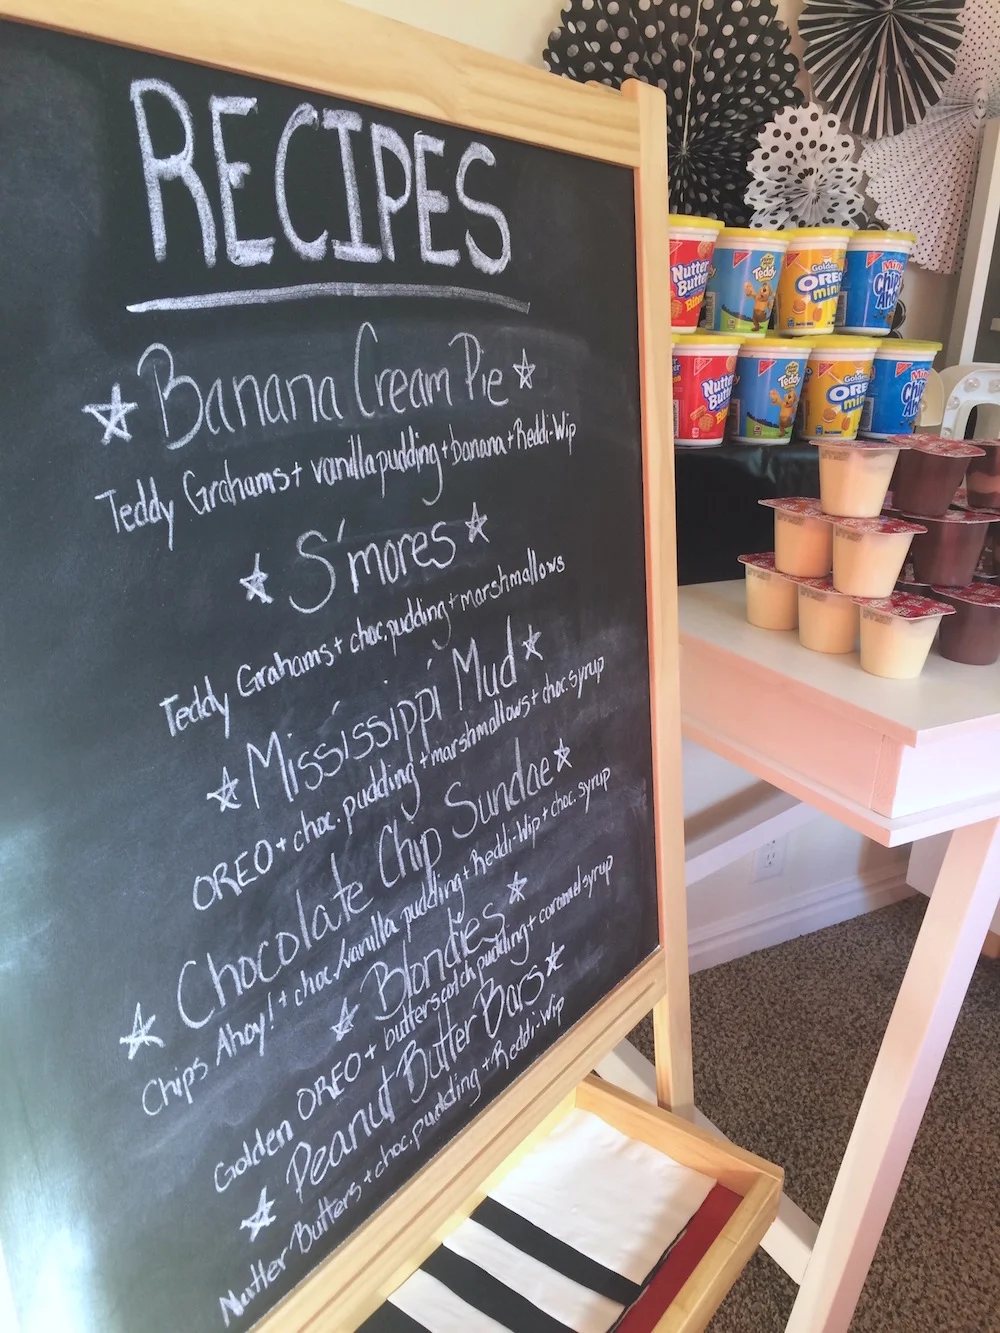 RECIPES
☆ Banana Cream Pie ☆
Teddy Grahams + vanilla pudding + banana + Reddi-Wip
☆ S'mores ☆
Teddy Grahams + choc. pudding + marshmallows
☆ Mississippi Mud ☆
OREO + choc. pudding + marshmallows + choc. syrup
☆ Chocolate Chip Sundae ☆
Chips Ahoy! + choc./vanilla pudding + Reddi-Wip + choc. syrup
☆ Blondies ☆
Golden OREO + butterscotch pudding + caramel syrup
☆ Peanut Butter Bars ☆
Nutter Butters + choc. pudding + Reddi-Wip
Nutter
Butter
Bites
Teddy
Golden
OREO
mini
Mini
Chips
Ahoy
Nutter
Butter
Teddy
Golden
OREO
mini
Mini
Chips
Ah